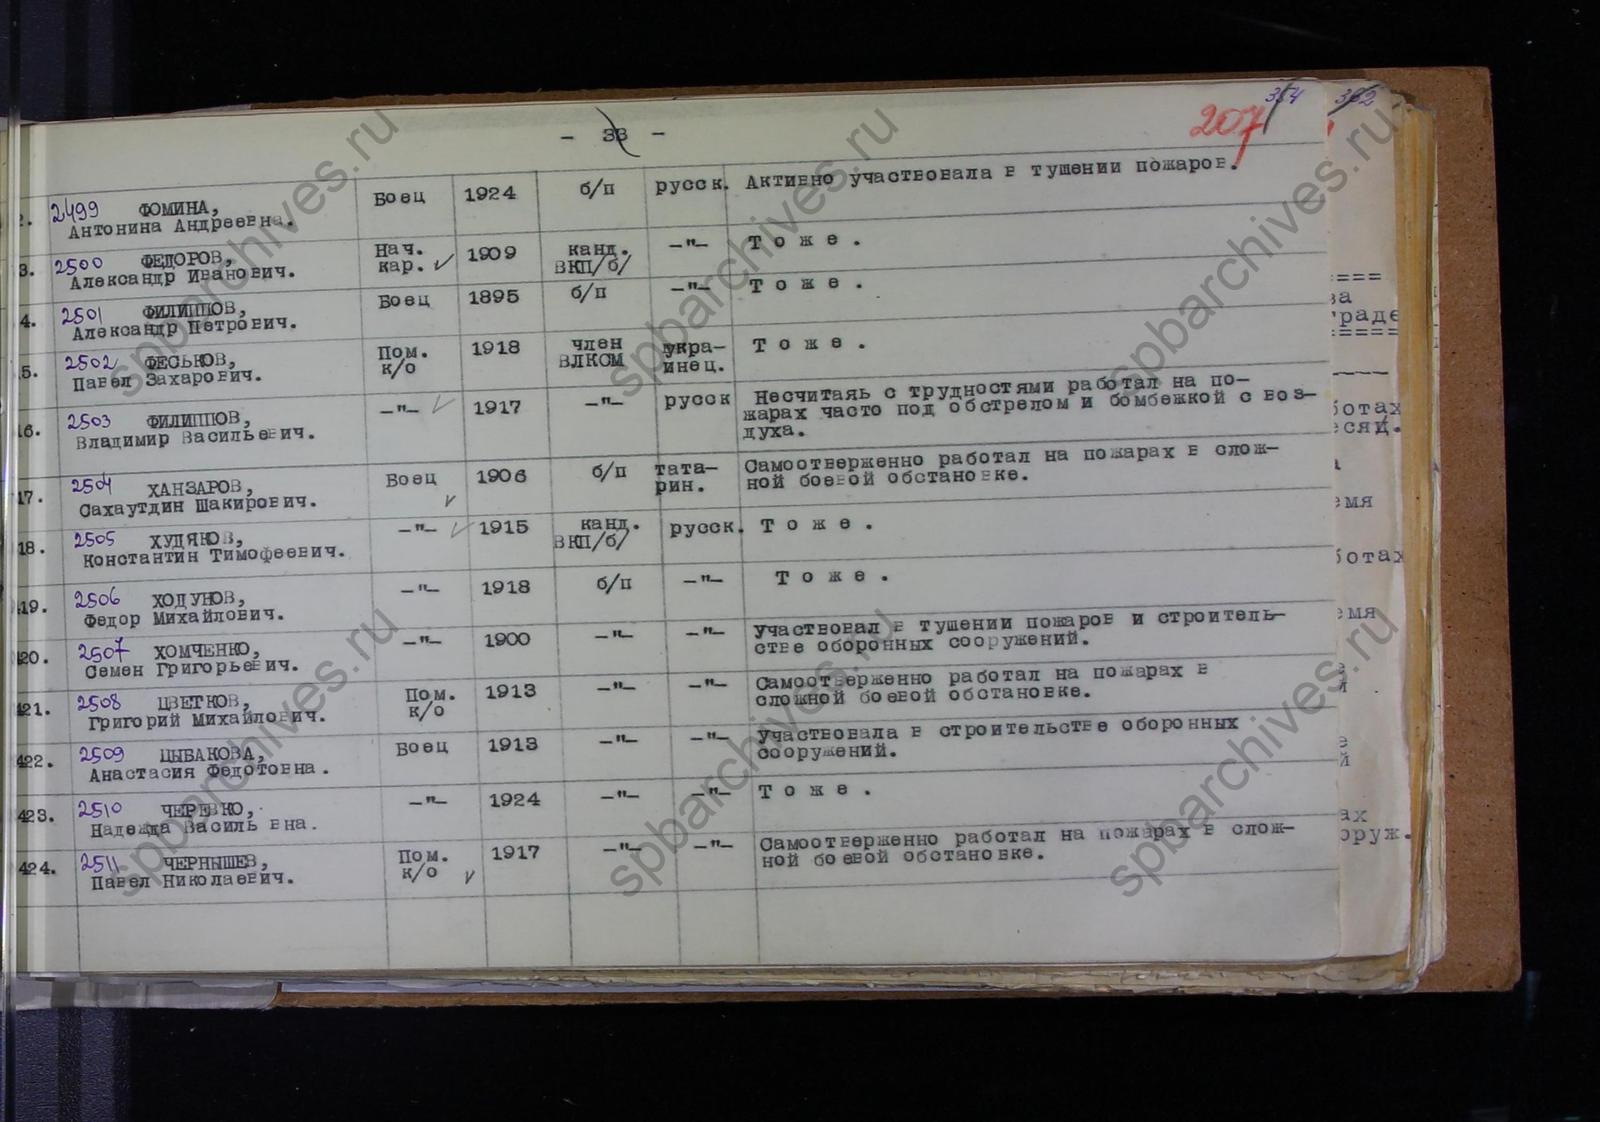 - 33 -
207
354
362
2. 2499 ФОМИНА, Боец 1924 б/п русск. Активно участвовала в тушении пожаров.
Антонина Андреевна.
3. 2500 ФЕДОРОВ, Нач. 1909 канд. -"- Т о ж е .
Александр Иванович. кар. ВКП/б/
4. 2501 ФИЛИППОВ, Боец 1895 б/п -"- Т о ж е .
Александр Петрович.
5. 2502 ФЕСЬКОВ, Пом. 1918 член укра- Т о ж е .
Павел Захарович. к/о ВЛКСМ инец.
16. 2503 ФИЛИППОВ, -"- 1917 -"- русск Несчитаяь с трудностями работал на по-
Владимир Васильевич. жарах часто под обстрелом и бомбежкой с воз-
духа.
17. 2504 ХАНЗАРОВ, Боец 1906 б/п тата- Самоотверженно работал на пожарах в слож-
Сахаутдин Шакирович. рин. ной боевой обстановке.
18. 2505 ХУДЯКОВ, -"- 1915 канд. русск. Т о ж е .
Константин Тимофеевич. ВКП/б/
419. 2506 ХОДУНОВ, -"- 1918 б/п -"- Т о ж е .
Федор Михайлович.
420. 2507 ХОМЧЕНКО, -"- 1900 -"- -"- Участвовал в тушении пожаров и строитель-
Семен Григорьевич. стве оборонных сооружений.
421. 2508 ЦВЕТКОВ, Пом. 1913 -"- -"- Самоотверженно работал на пожарах в
Григорий Михайлович. к/о сложной боевой обстановке.
422. 2509 ЦЫБАКОВА, Боец 1913 -"- -"- Участвовала в строительстве оборонных
Анастасия Федотовна. сооружений.
423. 2510 ЧЕРЕВКО, -"- 1924 -"- -"- Т о ж е .
Надежда Василь вна.
424. 2511 ЧЕРНЫШЕВ, Пом. 1917 -"- -"- Самоотверженно работал на пожарах в слож-
Павел Николаевич. к/о ной боевой обстановке.
spbarchives.ru
spbarchives.ru
spbarchives.ru
spbarchives.ru
spbarchives.ru
spbarchives.ru